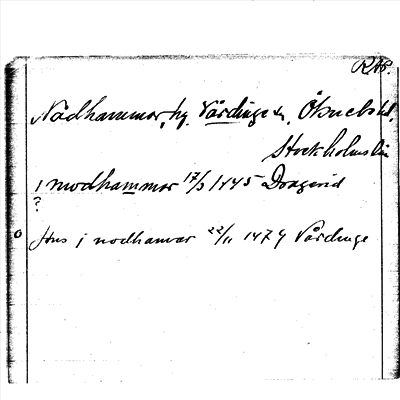 RAP.
Nådhammar, hg. Vårdinge sn, Öknebo hd,
Stockholms län
i nodhammar 17/3 1445
?
Hus i nodhamar 22/11 1474 Vårdinge